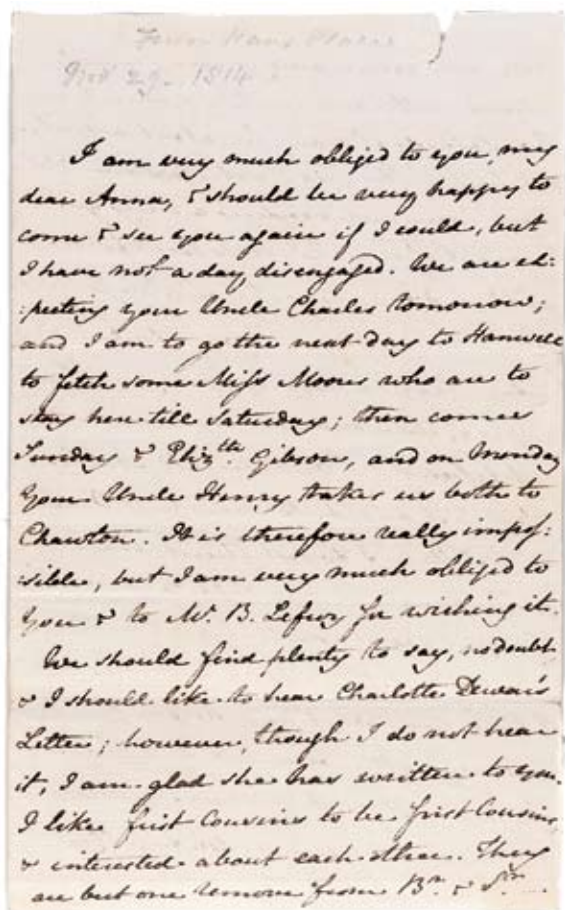 From Hans Place
Nov 29. 1814
I am very much obliged to you, my
dear Anna, & should be very happy to
come & see you again if I could, but
I have not a day disengaged. We are ex:
:pecting your Uncle Charles tomorrow;
and I am to go the next day to Hanwell
to fetch some Miss Moores who are to
stay here till Saturday; then comes
Sunday & Eliz:th Gibson, and on Monday
Your Uncle Henry takes us both to
Chawton. It is therefore really impos:
:sible, but I am very much obliged to
You & to Mr. B. Lefroy for wishing it.
We should find plenty to say, no doubt
& I should like to hear Charlotte Dewar's
Letter; however, though I do not hear
it, I am glad she has written to you.
I like first Cousins to be first Cousins,
& interested about each other. They
are but one remove from Br. & Sr.